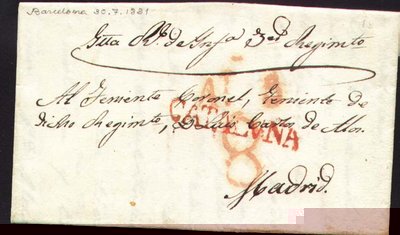 Barcelona 30.7.1821
Gtta Rl. de Infa 3er Regimto
Al Teniente Coronel, Teniente de
dicho Regimto, de
CATALUÑA
Madrid.